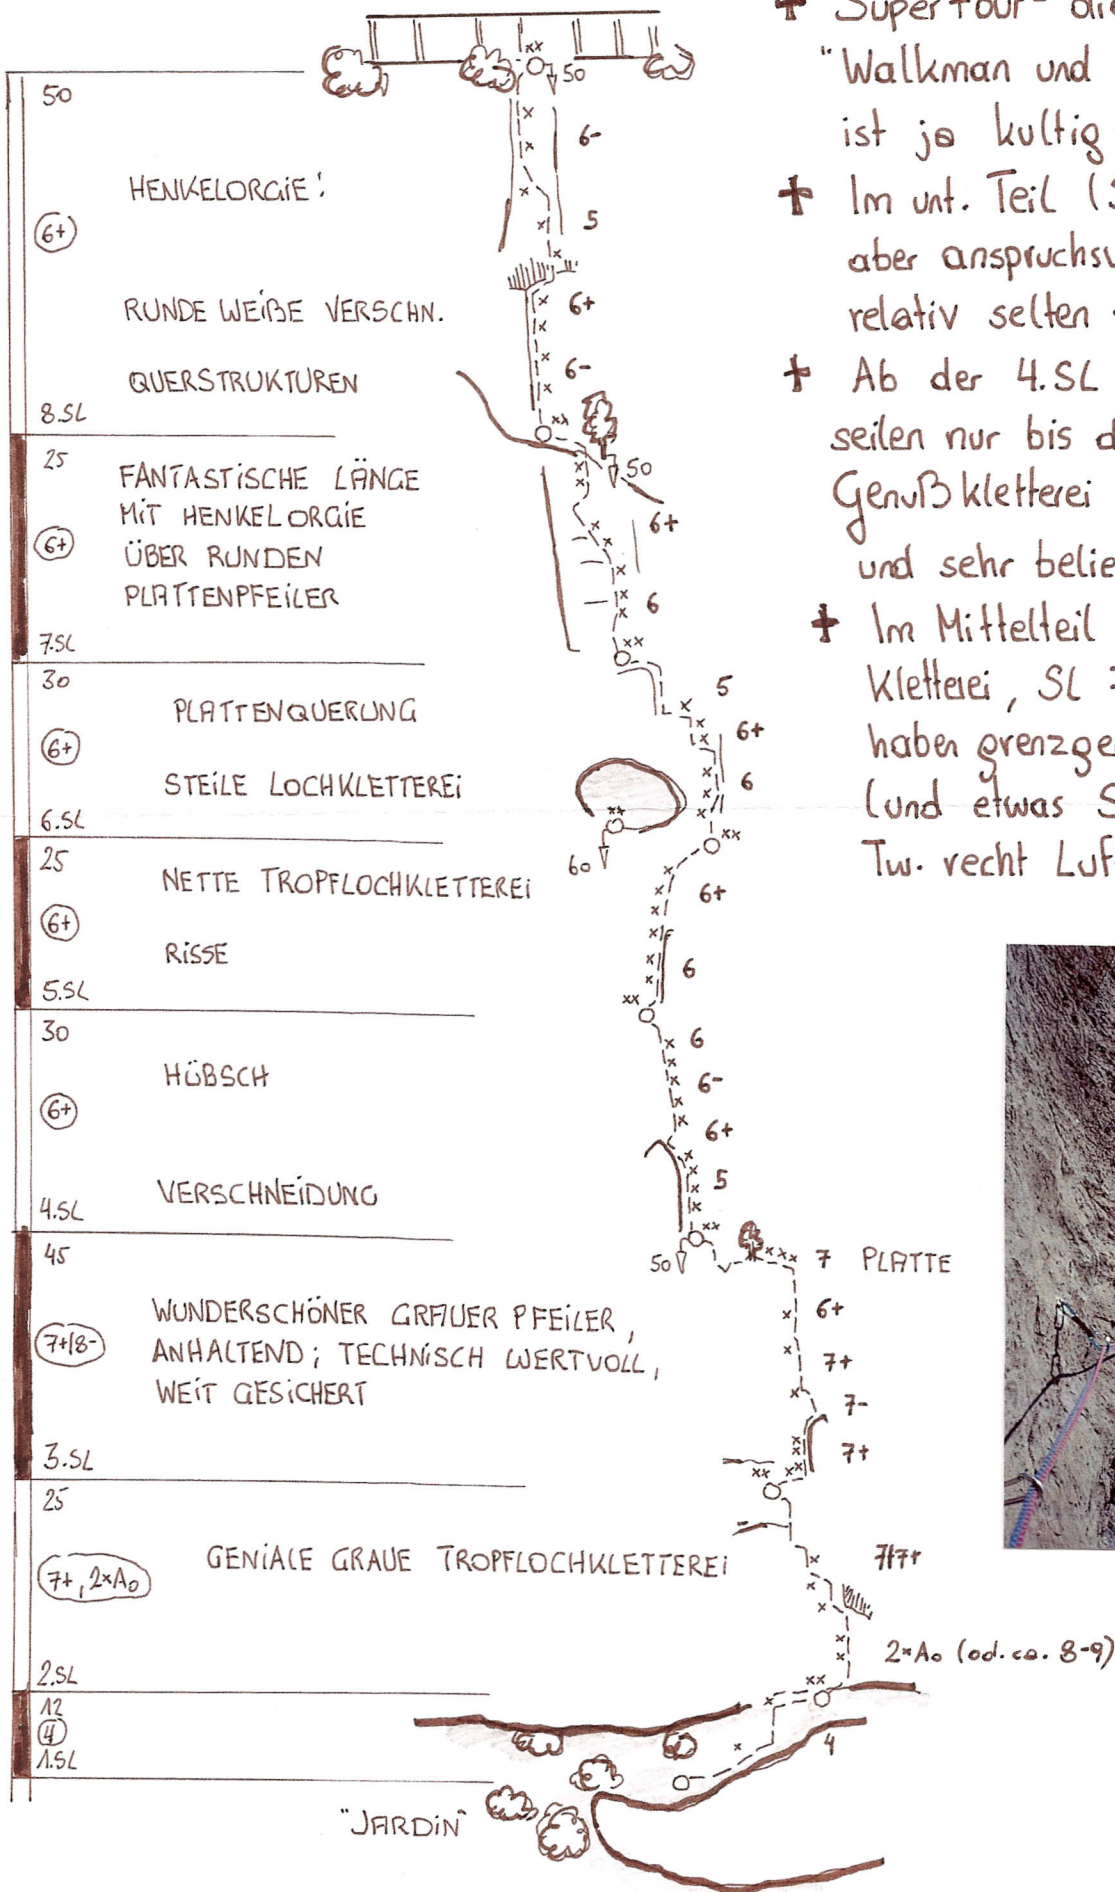 50
HENKELORGIE!
6+
RUNDE WEIßE VERSCHN.
QUERSTRUKTUREN
8.SL
25
FANTASTISCHE LÄNGE
MIT HENKELORGIE
6+
ÜBER RUNDEN
PLATTENPFEILER
7.SL
30
PLATTENQUERUNG
6+
STEILE LOCHKLETTEREI
6.SL
25
NETTE TROPFLOCHKLETTEREI
6+
RISSE
5.SL
30
HÜBSCH
6+
VERSCHNEIDUNG
4.SL
45
WUNDERSCHÖNER GRAUER PFEILER,
7+/8-
ANHALTEND; TECHNISCH WERTVOLL,
WEIT GESICHERT
3.SL
25
GENIALE GRAUE TROPFLOCHKLETTEREI
7+, 2×A0
2.SL
12
4
1.SL
"JARDIN"
xx
50
6-
5
6+
6-
xx
50
6+
6
xx
5
6+
6
xx
60
xx
6+
6
xx
6
6-
6+
5
xx
50
7 PLATTE
6+
7+
7-
7+
xx
7/7+
2×A0 (od. ca. 8-9)
xx
4
"Walkman und
ist ja kultig
+ Im unt. Teil (
aber
relativ selten
+ Ab der 4.SL
seilen nur bis
Genußkletterei
und sehr
+ Im Mittelteil
Kletterei, SL
haben
(und etwas
Tw. recht